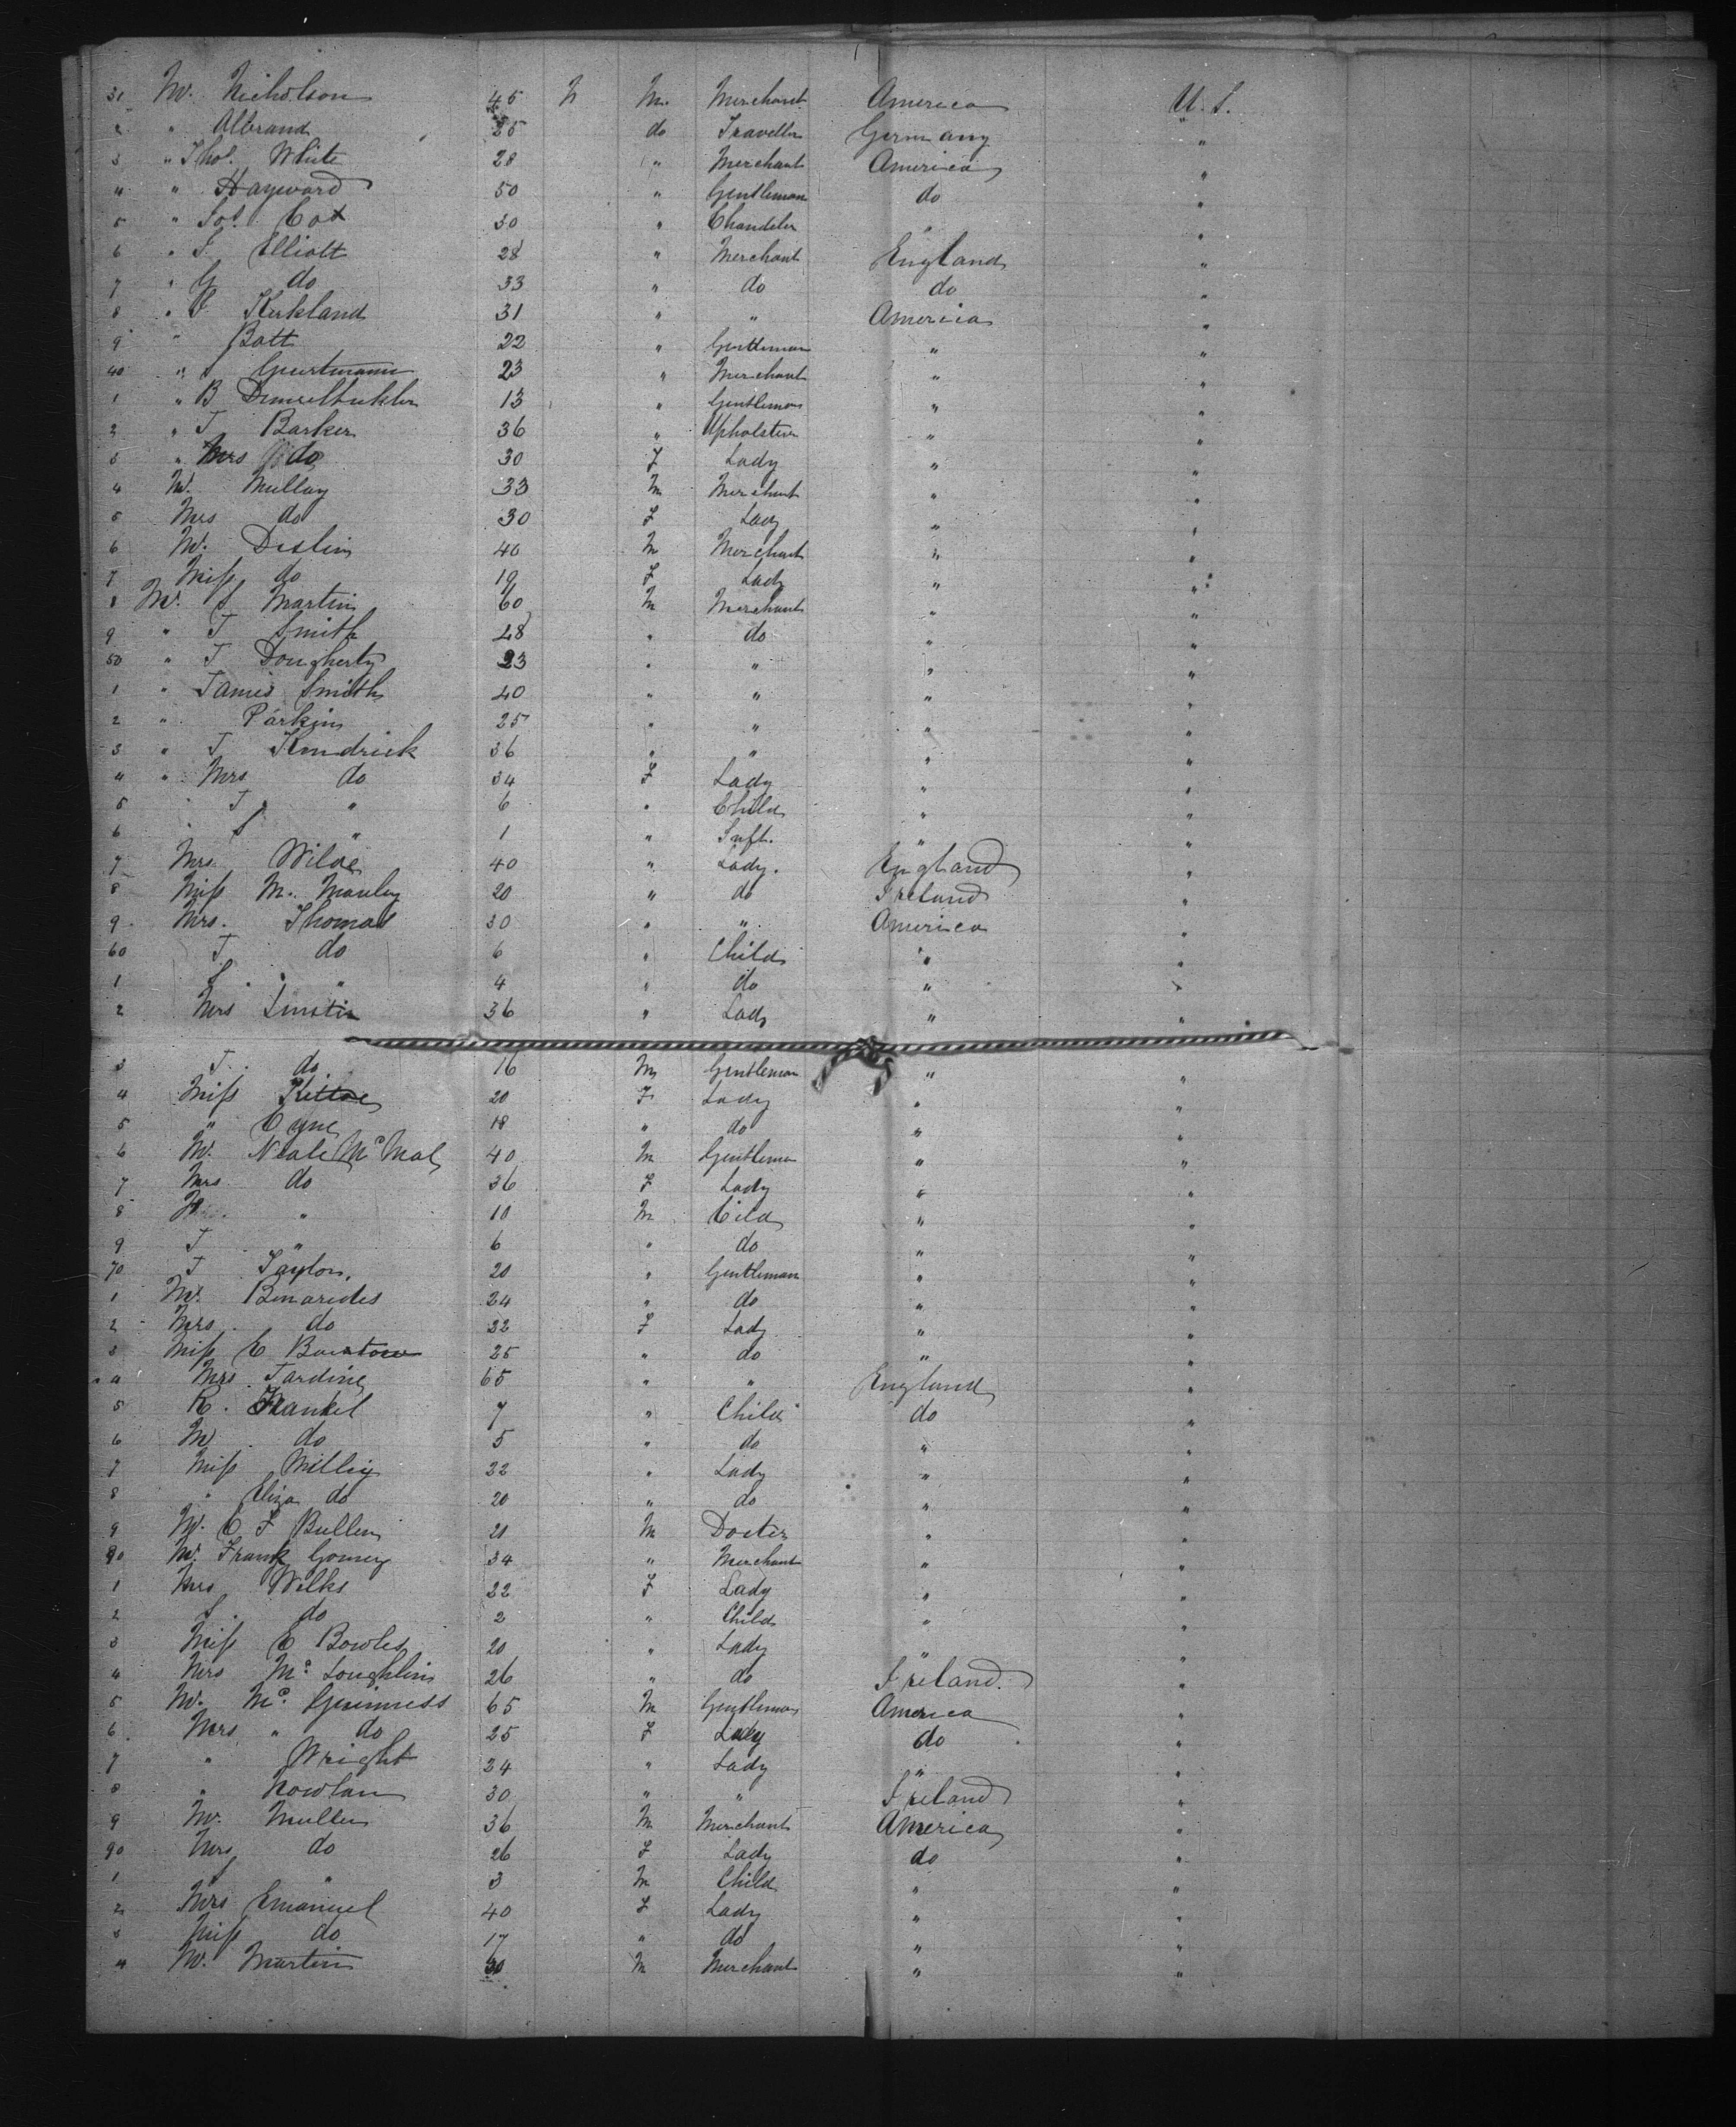 31 Mr. Nicholson 45 M. Merchant America U. S.
2 " Albrand 25 do Traveller Germany "
3 " Thos. White 28 " Merchant America "
4 " Hayward 50 " Gentleman do "
5 " Sol. Cox 30 " Chandeler " "
6 " J. Elliott 28 " Merchant England "
7 " G do 33 " do do "
8 " Kirkland 31 " " America "
9 " Batt 22 " Gentleman " "
40 " 23 " Merchant " "
1 " B 13 " Gentleman " "
2 " J Barker 36 " Upholsterer " "
3 " Mrs do 30 F Lady " "
4 Mr. Mullay 33 M Merchant " "
5 Mrs do 30 F Lady " "
6 Mr. Deslin 40 M Merchant " "
7 Miss do 19 F Lady " "
8 Mr. S Martin 60 M Merchant " "
9 " J Smith 28 " do " "
50 " J Dougherty 23 " " " "
1 " James Smith 40 " " " "
2 " Parkin 25 " " " "
3 " J Kendrick 36 " " " "
4 " Mrs do 34 F Lady " "
5 J " 6 " Child " "
6 S " 1 " Inft. " "
7 Mrs. Wilde 40 " Lady. England "
8 Miss M. Manley 20 " do Ireland "
9 Mrs. Thomas 30 " " America "
60 J do 6 " Child " "
1 S. " 4 " do " "
2 Mrs 36 " Lady " "
3 J. do 16 M Gentleman " "
4 Miss Kittoe 20 F Lady " "
5 " 18 " do " "
6 Mr. Neale 40 M Gentleman " "
7 Mrs do 36 F Lady " "
8 " 10 M Cild " "
9 J " 6 " do " "
70 J Taylor. 20 " Gentleman " "
1 Mr. Benarides 24 " do " "
2 Mrs do 22 F Lady " "
3 Miss E 25 " do " "
4 Mrs Jardine 65 " " England "
5 R. Frankel 7 " Child do "
6 M. do 5 " do " "
7 Miss 22 " Lady " "
8 " Eliza do 20 " do " "
9 Mr. C F Bullen 21 M Docter " "
80 Mr. Frank 34 " Merchant " "
1 Mrs Wilks 22 F Lady " "
2 S. do 2 " Child " "
3 Miss E Bowles 20 " Lady " "
4 Mrs Mc. Loughlin 26 " do Ireland. "
5 Mr. Mc. Guinness 65 M Gentleman America "
6 Mrs " do 25 F Lady do "
7 " Wright 24 " Lady " "
8 " Nowlan 30 " " Ireland "
9 Mr. Muller 36 M Merchant America "
90 Mrs do 26 F Lady do "
1 S " 3 M Child " "
2 Mrs Emanuel 40 F Lady " "
3 Miss do 17 " do " "
4 Mr. Martin 30 M Merchant " "